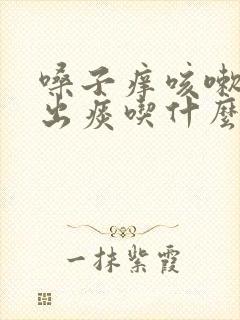 嗓子痒咳嗽
出痰喫什麽
一抹紫霞